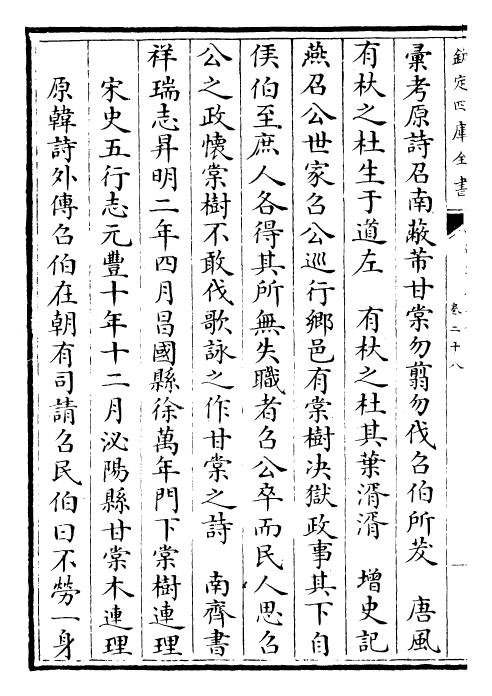 欽定四庫全書
卷二十八
彙考原詩召南蔽芾甘棠勿翦勿伐召伯所茇　唐風
有杕之杜生于道左　有杕之杜其葉湑湑　增史記
燕召公世家召公巡行鄉邑有棠樹決獄政事其下自
侯伯至庶人各得其所無失職者召公卒而民人思召
公之政懷棠樹不敢伐歌詠之作甘棠之詩　南齊書
祥瑞志昇明二年四月昌國縣徐萬年門下棠樹連理
宋史五行志元豐十年十二月泌陽縣甘棠木連理
原韓詩外傳召伯在朝有司請召民伯曰不勞一身